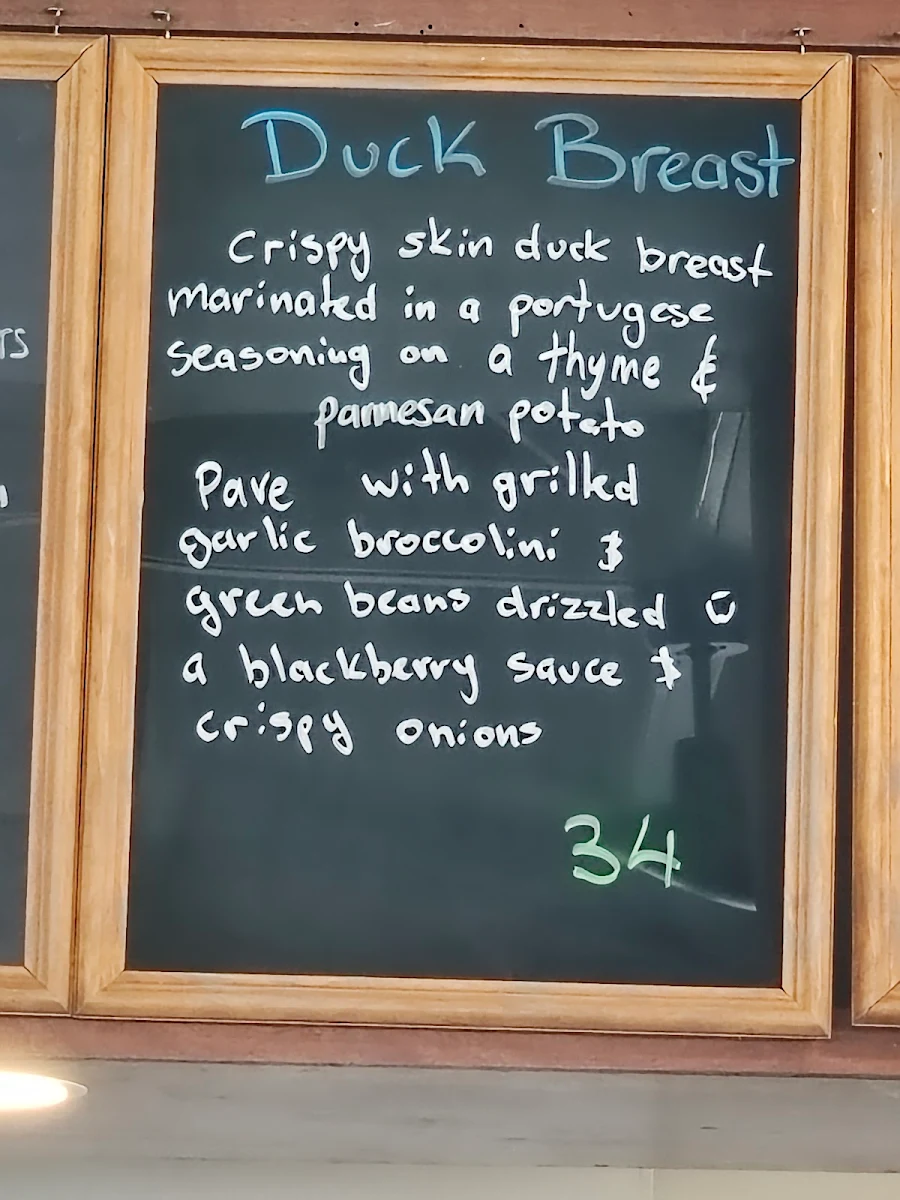 Duck Breast
Crispy skin duck breast
marinated in a portugese
seasoning on a thyme &
parmesan potato
Pave with grilled
garlic broccolini &
green beans drizzled c̄
a blackberry sauce &
crispy onions
34
rs